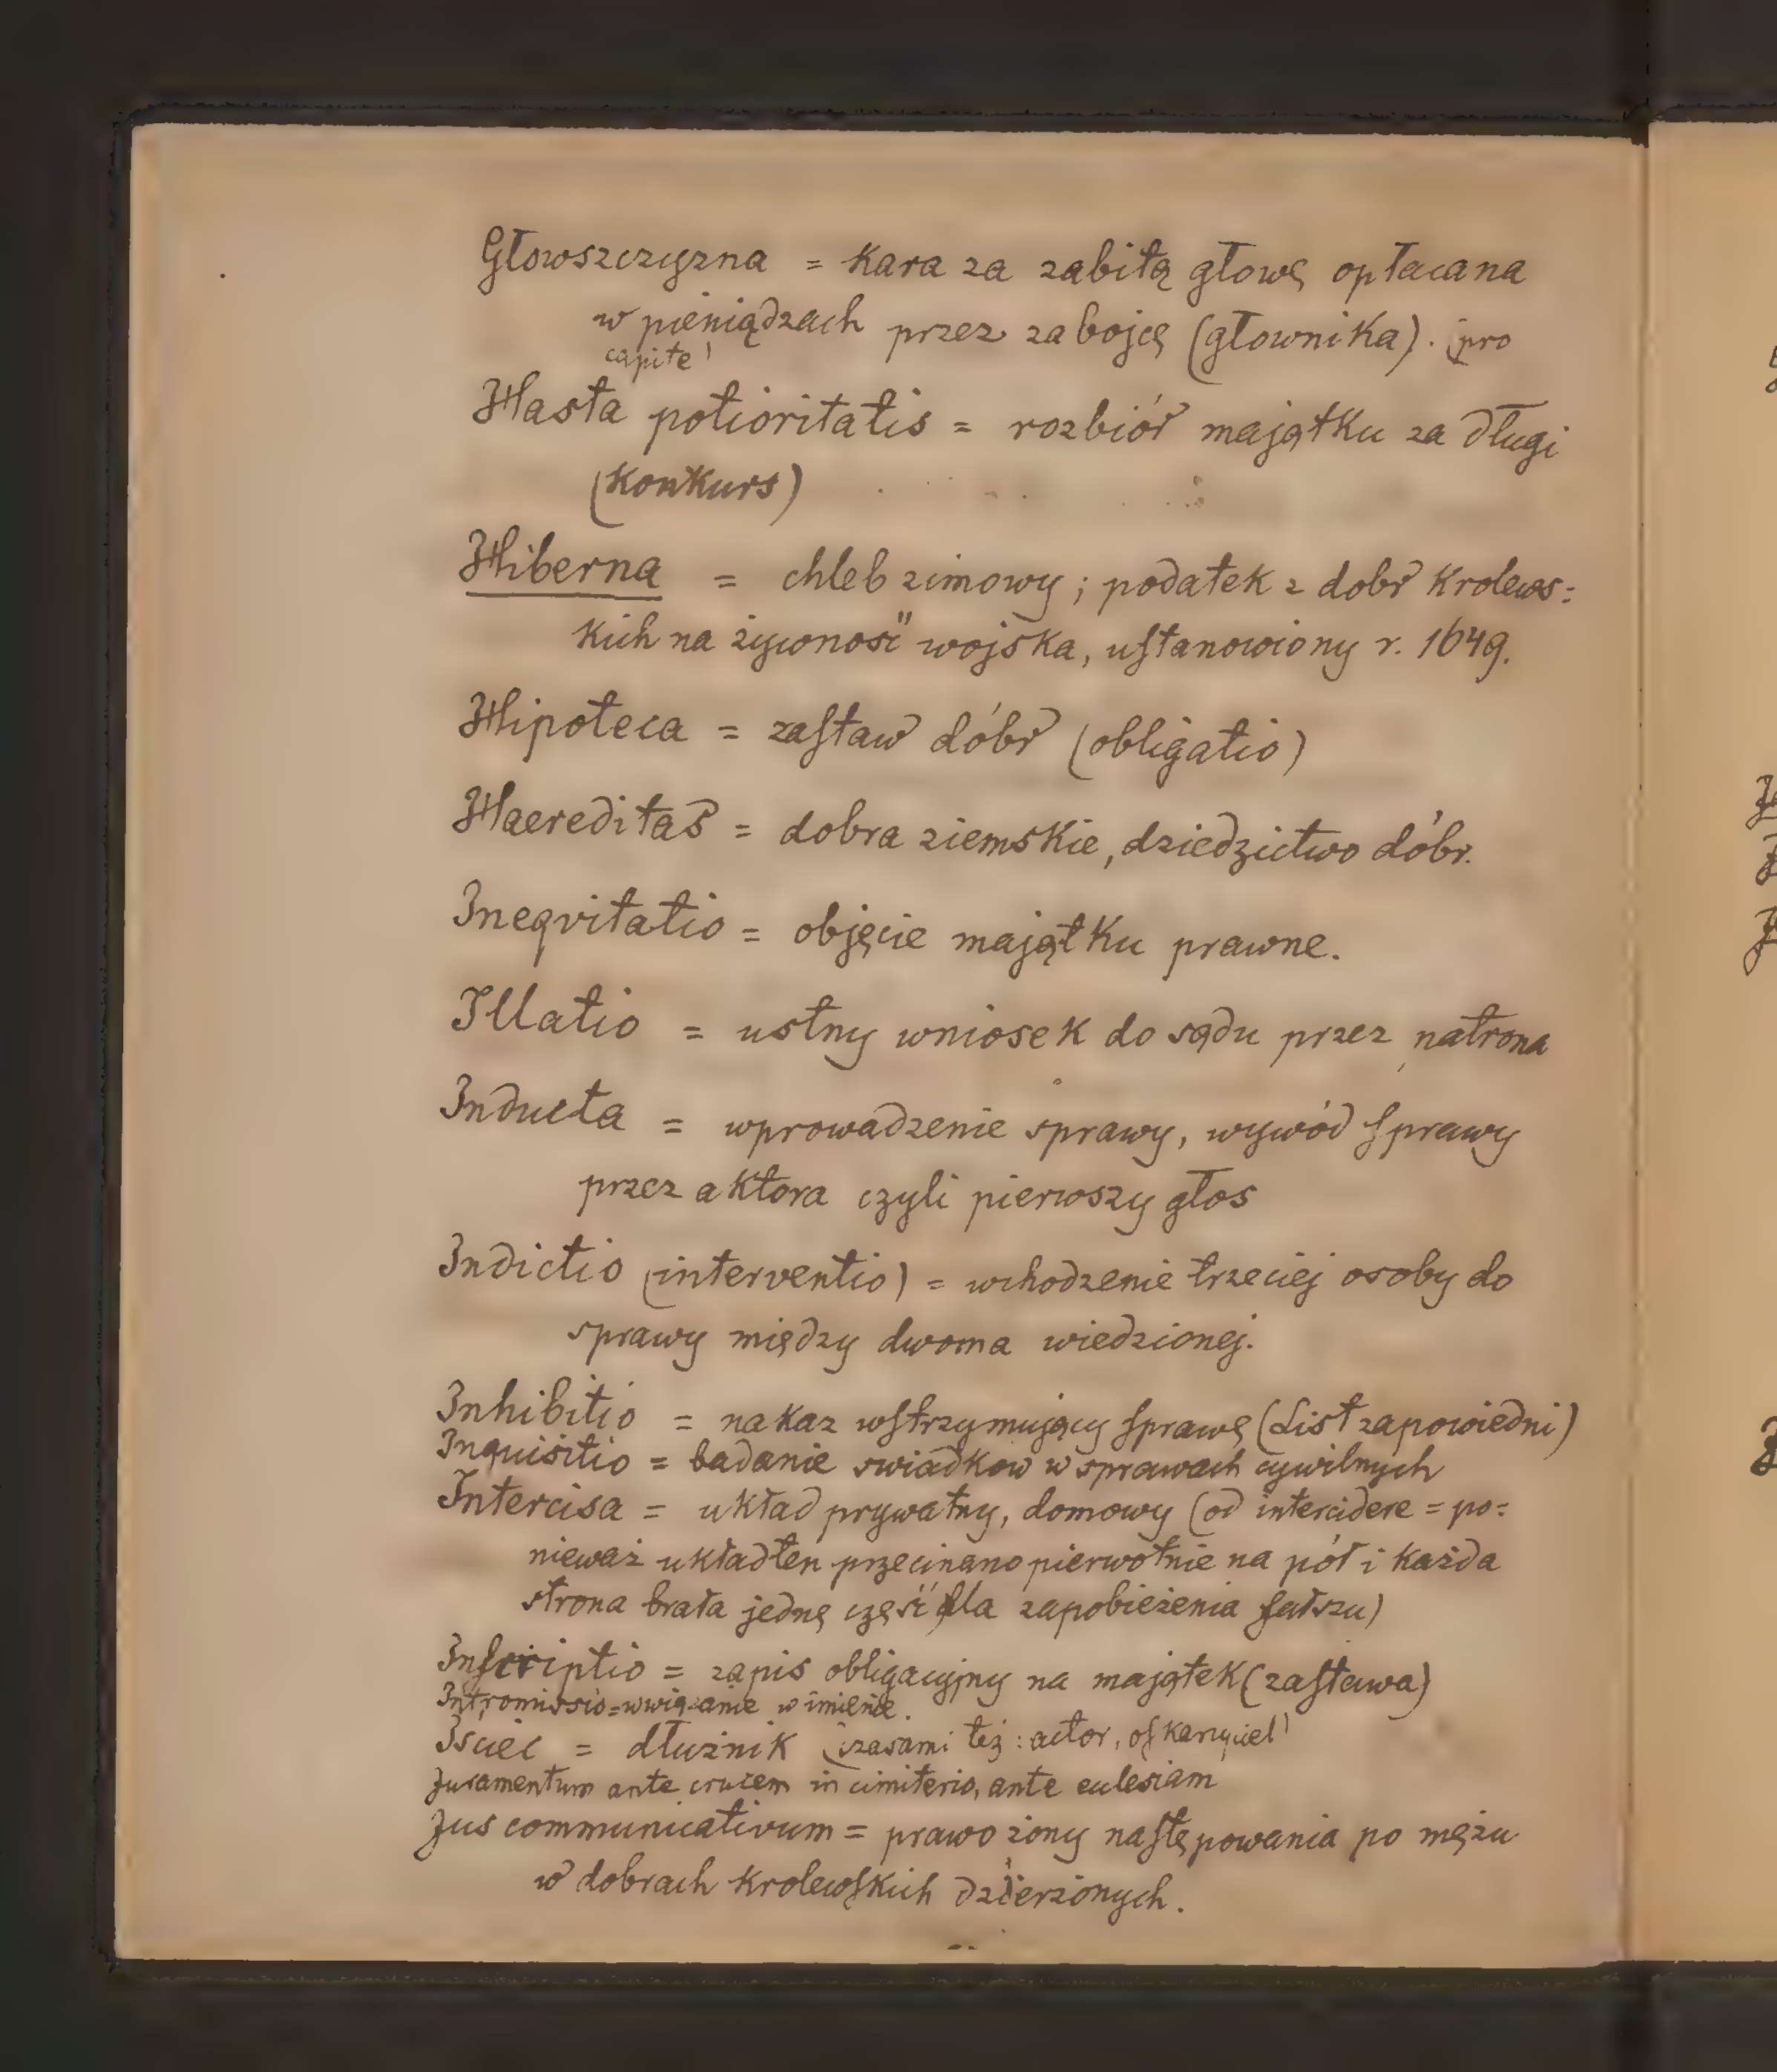 Głowszczyzna = kara za zabitą głowę opłacana
w pieniądzach przez zabojcę (głownika). (pro
capite)
Hasta potioritatis = rozbiór majątku za długi
(konkurs)
Hiberna = chleb zimowy; podatek z dobr krolews=
kich na żywność wojska, ustanowiony r. 1649.
Hipoteca = zastaw dóbr (obligatio)
Haereditas = dobra ziemskie, dziedzictwo dóbr.
Ineqvitatio = objęcie majątku prawne.
Illatio = ustny wniosek do sądu przez patrona
Inducta = wprowadzenie sprawy, wywód sprawy
przez aktora czyli pierwszy głos
Indictio (interventio) = wchodzenie trzeciej osoby do
sprawy między dwoma wiedzionej.
Inhibitio = nakaz wstrzymujący sprawę (List zapowiedni)
Inquisitio = badanie swiadkow w sprawach cywilnych
Intercisa = układ prywatny, domowy (od intercidere = po=
nieważ układ ten przecinano pierwotnie na pół i każda
strona brała jednę część dla zapobieżenia fałszu)
Inscriptio = zapis obligacyjny na majątek (zastawa)
Intromissio = wwiązanie w imienie.
Isciec = dłużnik (czasami też: actor, oskarżyciel)
Juramentum ante crucem in cimiterio, ante eclesiam
Jus communicativum = prawo żony następowania po mężu
w dobrach krolewskich dzierżonych.